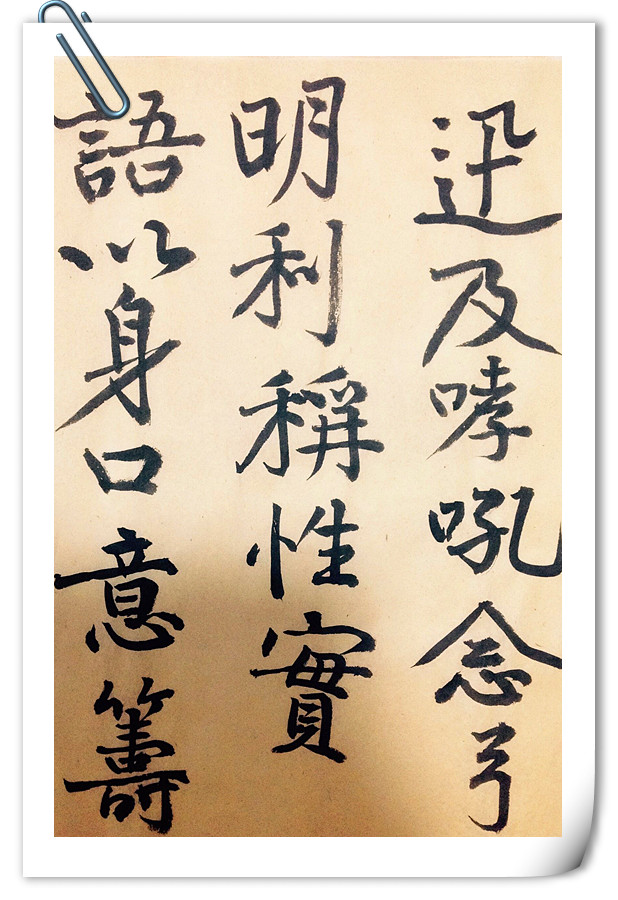 迅及哮吼念弓
明利稱性實
語以身口意籌